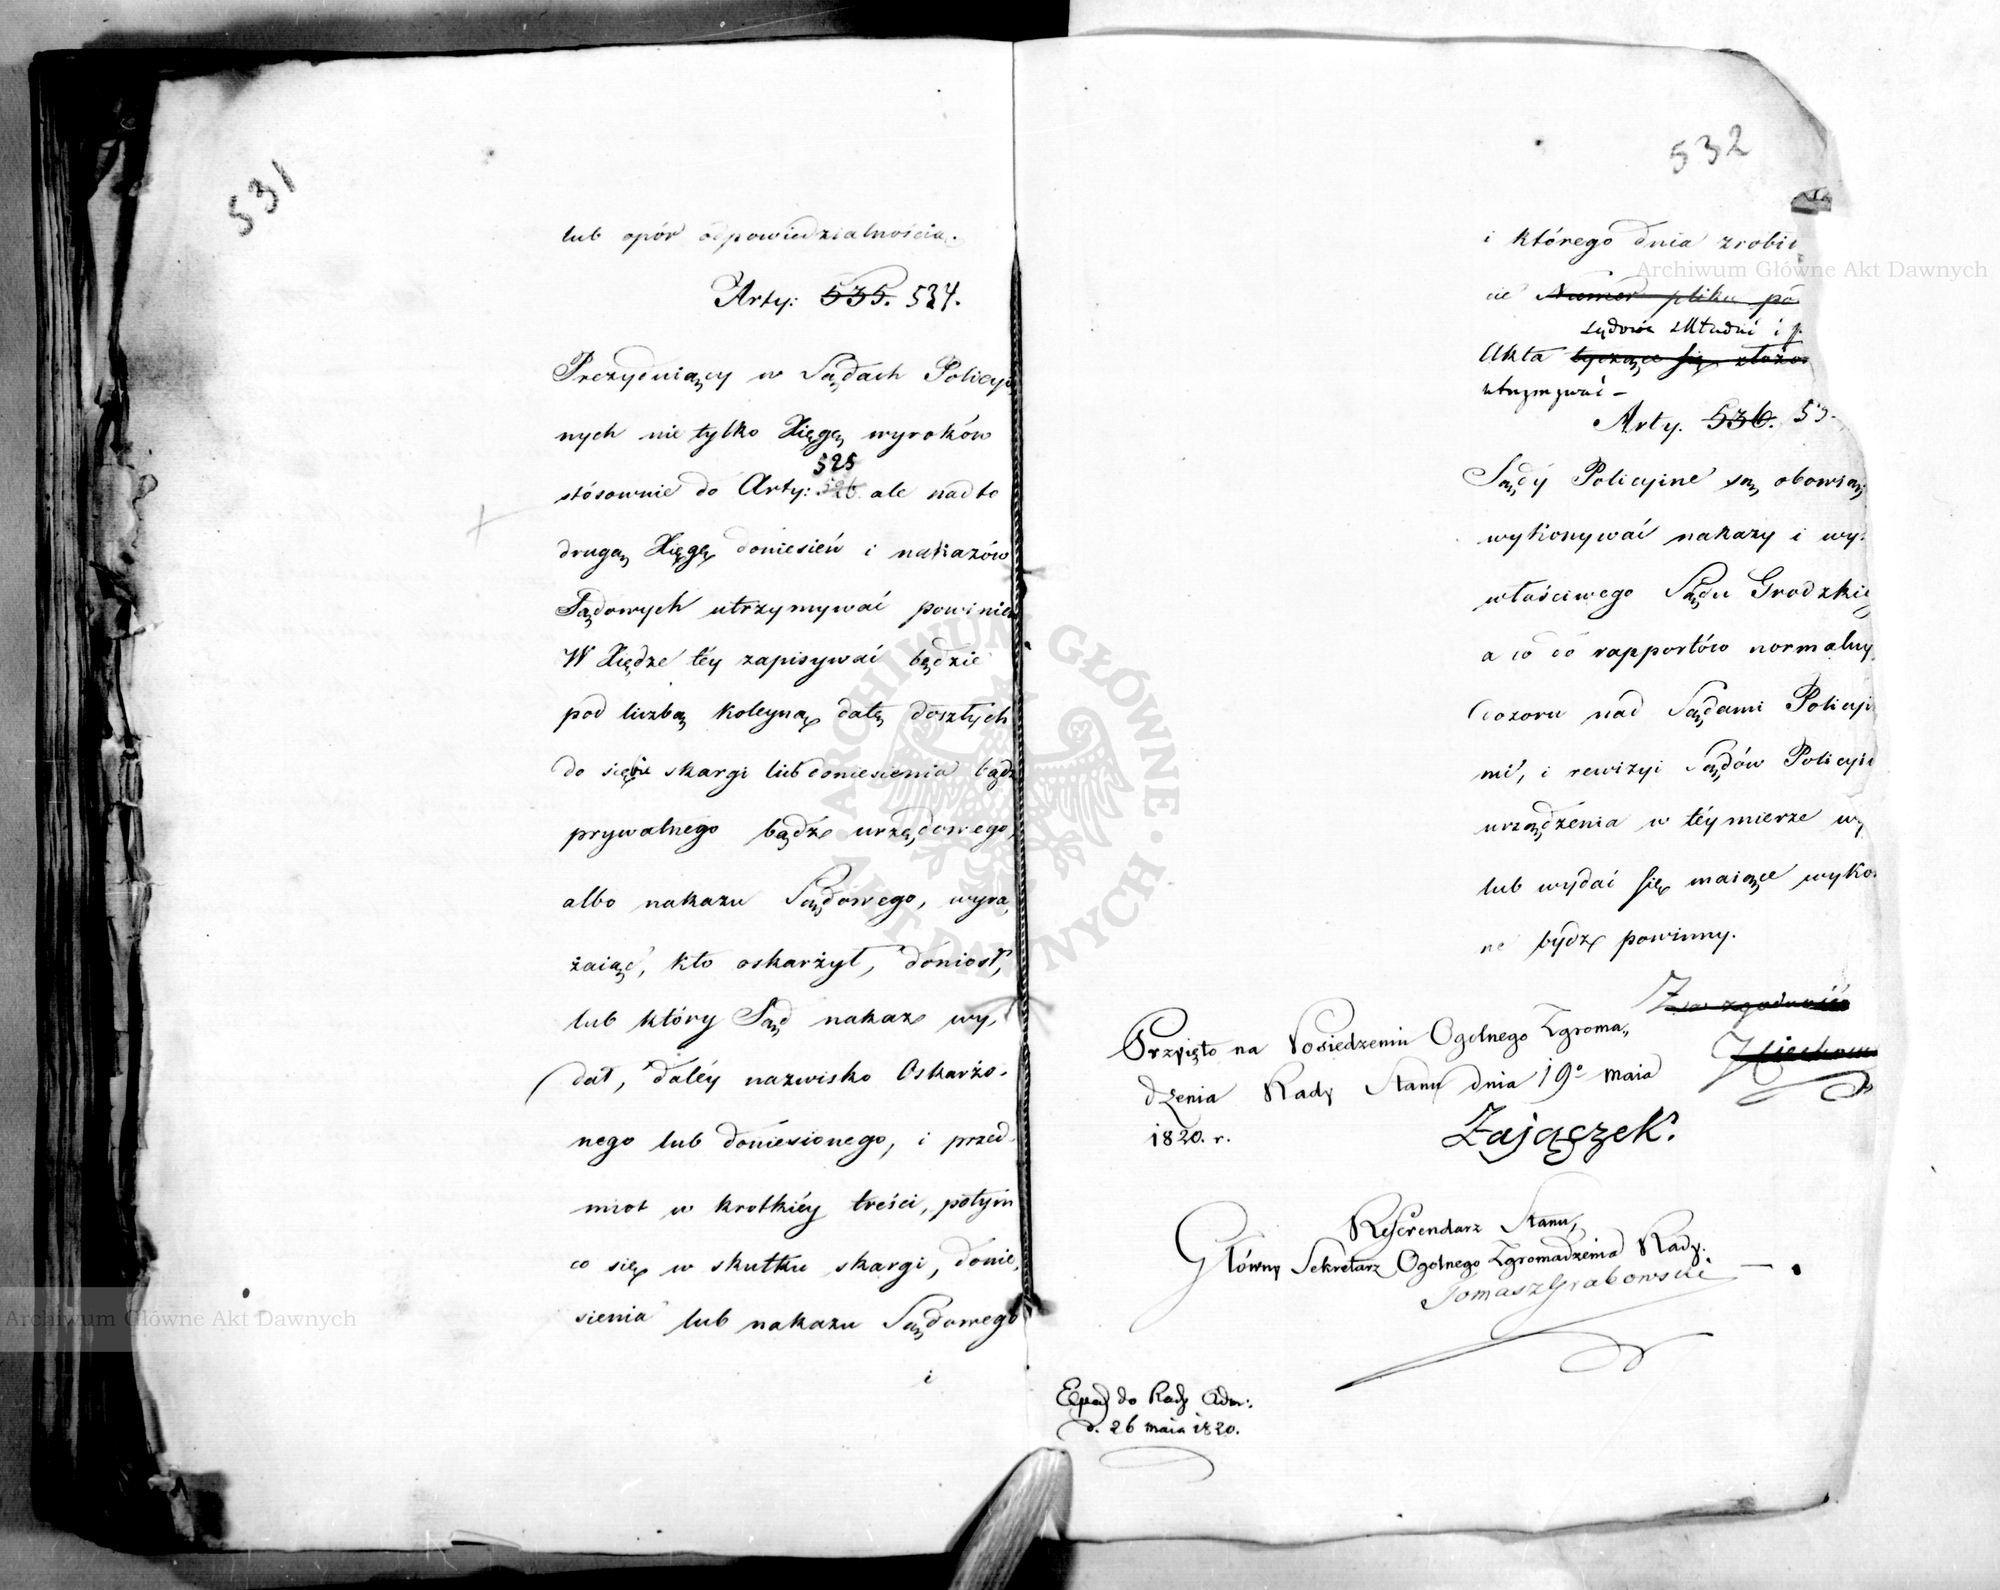 531
lub opór odpowiedzialnością.
Arty: 535. 534.
Prezyduiący w Sądach Policyi
nych nie tylko Xięgę wyroków
525
stósownie do Arty: 526. ale nadto
drugą Xięgę doniesień i nakazów
Sądowych utrzymywać powinien
W Xiędze téy zapisywać będzie
pod liczbą koleyną datę doszłych
do siebie skargi lub doniesienia bądź
prywatnego bądź urzędowego,
albo nakazu Sądowego, wyra,
żaiąc, kto oskarżył, doniosł,
lub który Sąd nakaz wy,
dał, daléy nazwisko Oskarżo.
nego lub doniesionego, i przed.
miot w krotkiéy treści, potym
co się w skutku skargi, donie,
sienia lub nakazu Sądowego
i
532
i którego dnia zrobi
cie Numer pliku po
Sądowe składać i p
Akta tyczące się złożo
utrzymywać –
Arty. 536. 53
Sądy Policyine są obowiąz
wykonywać nakazy i wy,
właściwego Sądu Grodzkie
a co do rapportów normalny
dozoru nad Sądami Policyi
mi, i rewizyi Sądów Policyi
urządzenia w téy mierze wy
lub wydać się maiące wyko,
ne bydź powinny.
Za zgodność
Przyięto na Posiedzeniu Ogolnego Zgroma,
dzenia Rady Stanu dnia 19º maia
1820. r.
Zajączek.
Referendarz Stanu,
Główny Sekretarz Ogolnego Zgromadzenia Rady.
Tomasz Grabowski
Exped do Rady Adm:
d. 26 maia 1820.
Archiwum Główne Akt Dawnych
Archiwum Główne Akt Dawnych
ARCHIWUM GŁÓWNE AKT DAWNYCH